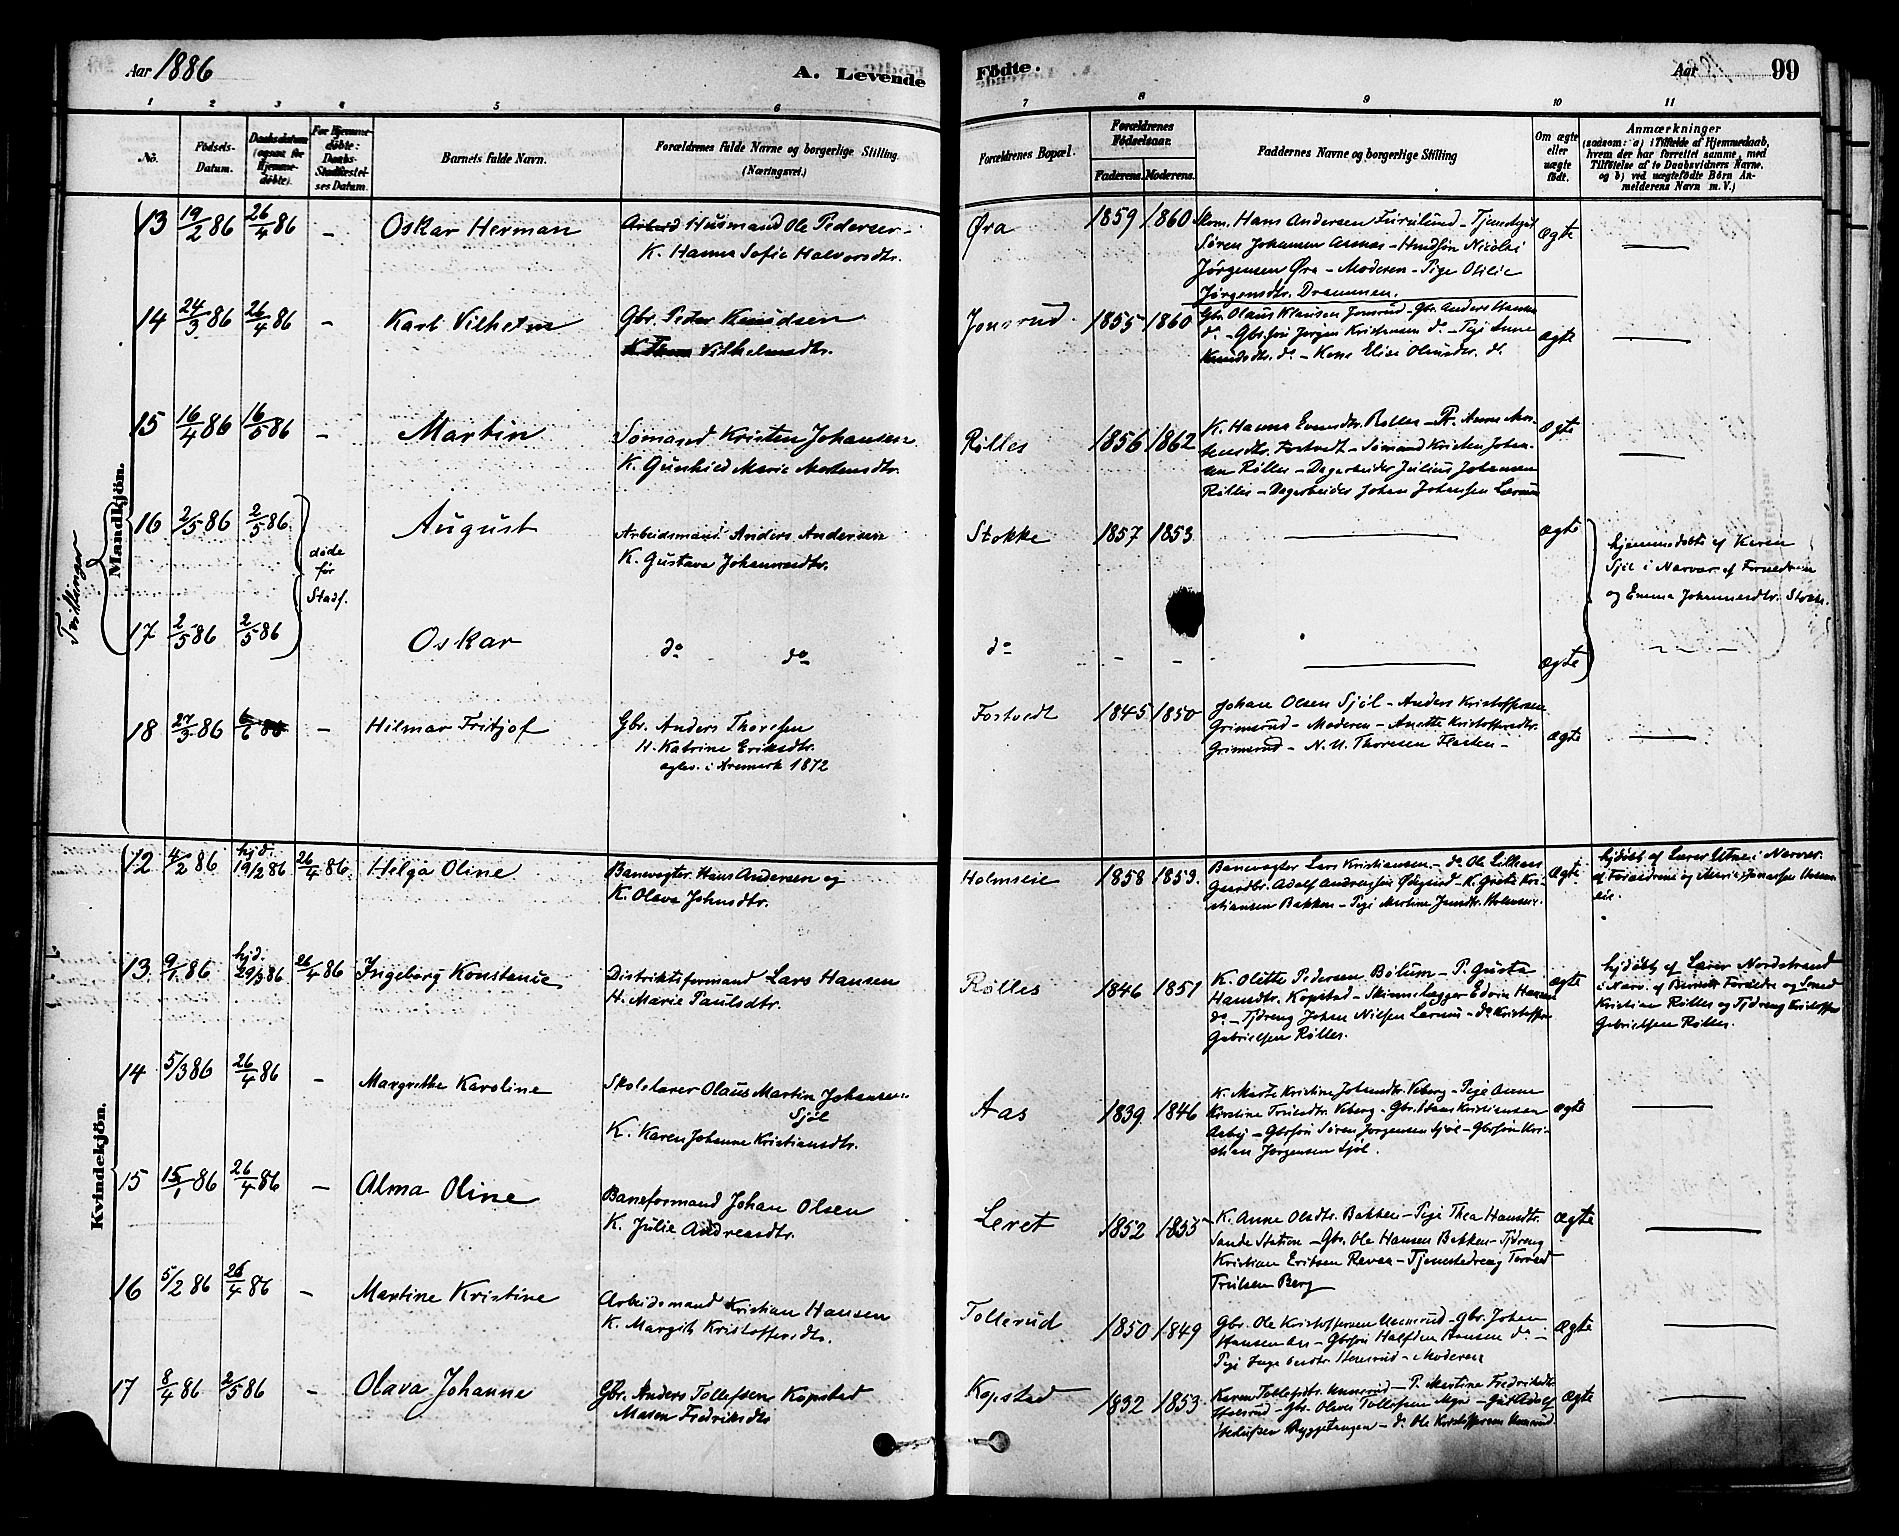 Aar 1886
A. Levende
Fødte.
Aar
99
1 2 3 4 5 6 7 8 9 10 11
No.
Fødsels-
Datum.
Daabsdatum
(ogsaa for
Hjemme-
døbte).
For Hjemme-
døbte:
Daabs-
Stadfæstel-
ses Datum.
Barnets fulde Navn.
Forældrenes fulde Navne og borgerlige Stilling
(Næringsvei.)
Forældrenes Bopæl.
Forældrenes
Fødselsaar.
Faderens. Moderens.
Faddernes Navne og borgerlige Stilling
Om ægte
eller
uægte
født.
Anmærkninger
(saasom: a) i Tilfælde af Hjemmedaab,
hvem der har forrettet samme, med
Tilføielse af to Daabsvidners Navne,
og b) ved uægtefødte Børn An-
melderens Navn m. V.)
Mandkjön.
13 19/2 86 26/4 86 – Oskar Herman
Husmand Ole Pedersen
K. Hanna Sofie Halvorsdtr.
Øra 1859 1860
Skom. Hans Andersen
Søren Johansen Aasnæs –
Jørgensen Øra – Moderen – Pige
Jørgensdtr. Drammen.
ægte
14 24/3 86 26/4 86 – Karl Vilhelm
Gbr. Peder Knudsen
Vilhelmsdtr.
Jonsrud 1855 1860
Gbr. Olaus Klausen Jonsrud – Gbr. Anders Hansen
do – Gbrsøn Jørgen Kristensen do – Pige Anne
Knudsdtr. do – Kone Elise
ægte
15 16/4 86 16/5 86 – Martin
Sømand Kristen Johansen
K. Gunhild Marie Mortensdtr.
Rølles 1856 1862
K. Hanna Evensdtr. Rølles – P. Anne Mor-
tensdtr. Fostvedt – Sømand Kristen Johan-
sen Rølles – Dagarbeider Julius Johansen
Rølles – Dagarbeider Johan Johansen
ægte
Tvillinger
16 2/5 86 2/5 86 August
døde
før
Stadf.
Arbeidsmand Anders Andersen
K. Gustava Johannesdtr.
Stokke 1857 1853
ægte
hjemmedøbte af Karen
Sjøl i Nærvær af Forældrene
og Emma Johannesdtr. Stokke.
17 2/5 86 2/5 86 Oskar
do do
do – –
ægte
18 27/3 86 – Hilmar Fritjof
Gbr. Anders Thoresen
H. Katrine Eriksdtr.
i Aremark 1872
Fostvedt 1845 1850
Johan Olsen Sjøl – Anders Kristoffersen
Grimsrud – Moderen – Anette Kristoffersdtr.
Grimsrud – N. U. Thoresen
ægte
Kvindekjön.
12 4/2 86 hjd. 19/2 86 26/4 86. Helga Oline
Banevogter Hans Andersen og
K. Olava Johnsdtr.
Holmseie 1858 1853.
Banevogter Lars Kristiansen – do Ole
Gaardbr. Adolf – K. Grete Kri-
stiansen Bakken – Pige Martine
ægte
hjdøbt af Lærer i Nærvær
af Forældrene og
13. 9/1 86 hjd. 29/3 86 26/4 86 Ingeborg Konstance
Distriktsformand Lars Hansen
H. Marie Paulsdtr.
Rølles 1846 1851
K. Olette Pedersen Bølum – P. Gusta
Hansdtr. Kopstad – Skinnelægger Edvin Hansen
do – Tjdreng Johan Nielsen – do Kristoffer
Gabrielsen Rølles.
ægte
hjdøbt af Lærer Nordstrand
i Nærv. af Barnets Forældre og
Kristian Rølles og Tjdreng Kristoffer
Gabrielsen Rølles.
14 5/3 86 26/4 86 – Margrethe Karoline
Skolelærer Olaus Martin Johansen
Sjøl
K. Karen Johanne Kristiansdtr.
Aas 1839 1846
K. Marte Kristine Johansdtr. Veberg – Pige Anne
Kirstine Truelsdtr. Veberg – Gbr. Hans Kristiansen
– Gbrsøn Søren Jørgensen Sjøl – Gbrsøn Kri-
stian Jørgensen Sjøl.
ægte
15 15/1 86 26/4 86 – Alma Oline
Baneformand Johan Olsen
K. Julie Andreasdtr.
Leret 1852 1855
K. Anne Olsdtr. Bakken – Pige Thea Hansdtr.
Sande Station – Gbr. Ole Hansen Bakken – Tjdreng
Kristian Eriksen Revaa – Tjenestedreng
Trulsen Berg
ægte
16 5/2 86 26/4 86 – Martine Kristine
Arbeidsmand Kristian Hansen
K. Margit Kristoffersdtr.
Tollerud 1850 1849
Gbr. Ole Kristoffersen Unnerud – Gbr. Johan
Hansen – Gbrsøn Halfdan Hansen do –
Pige – Moderen
ægte
17 8/4 86 2/5 86 – Olava Johanne
Gbr. Anders Tollefsen Kopstad
Maren Fredriksdtr
Kopstad 1832 1853.
Karen Tollefsdtr. Unnerud – P. Martine Fredriksdtr.
– Gbr. Olaves Tollefsen
– do Ole Kristoffersen Unnerud
ægte